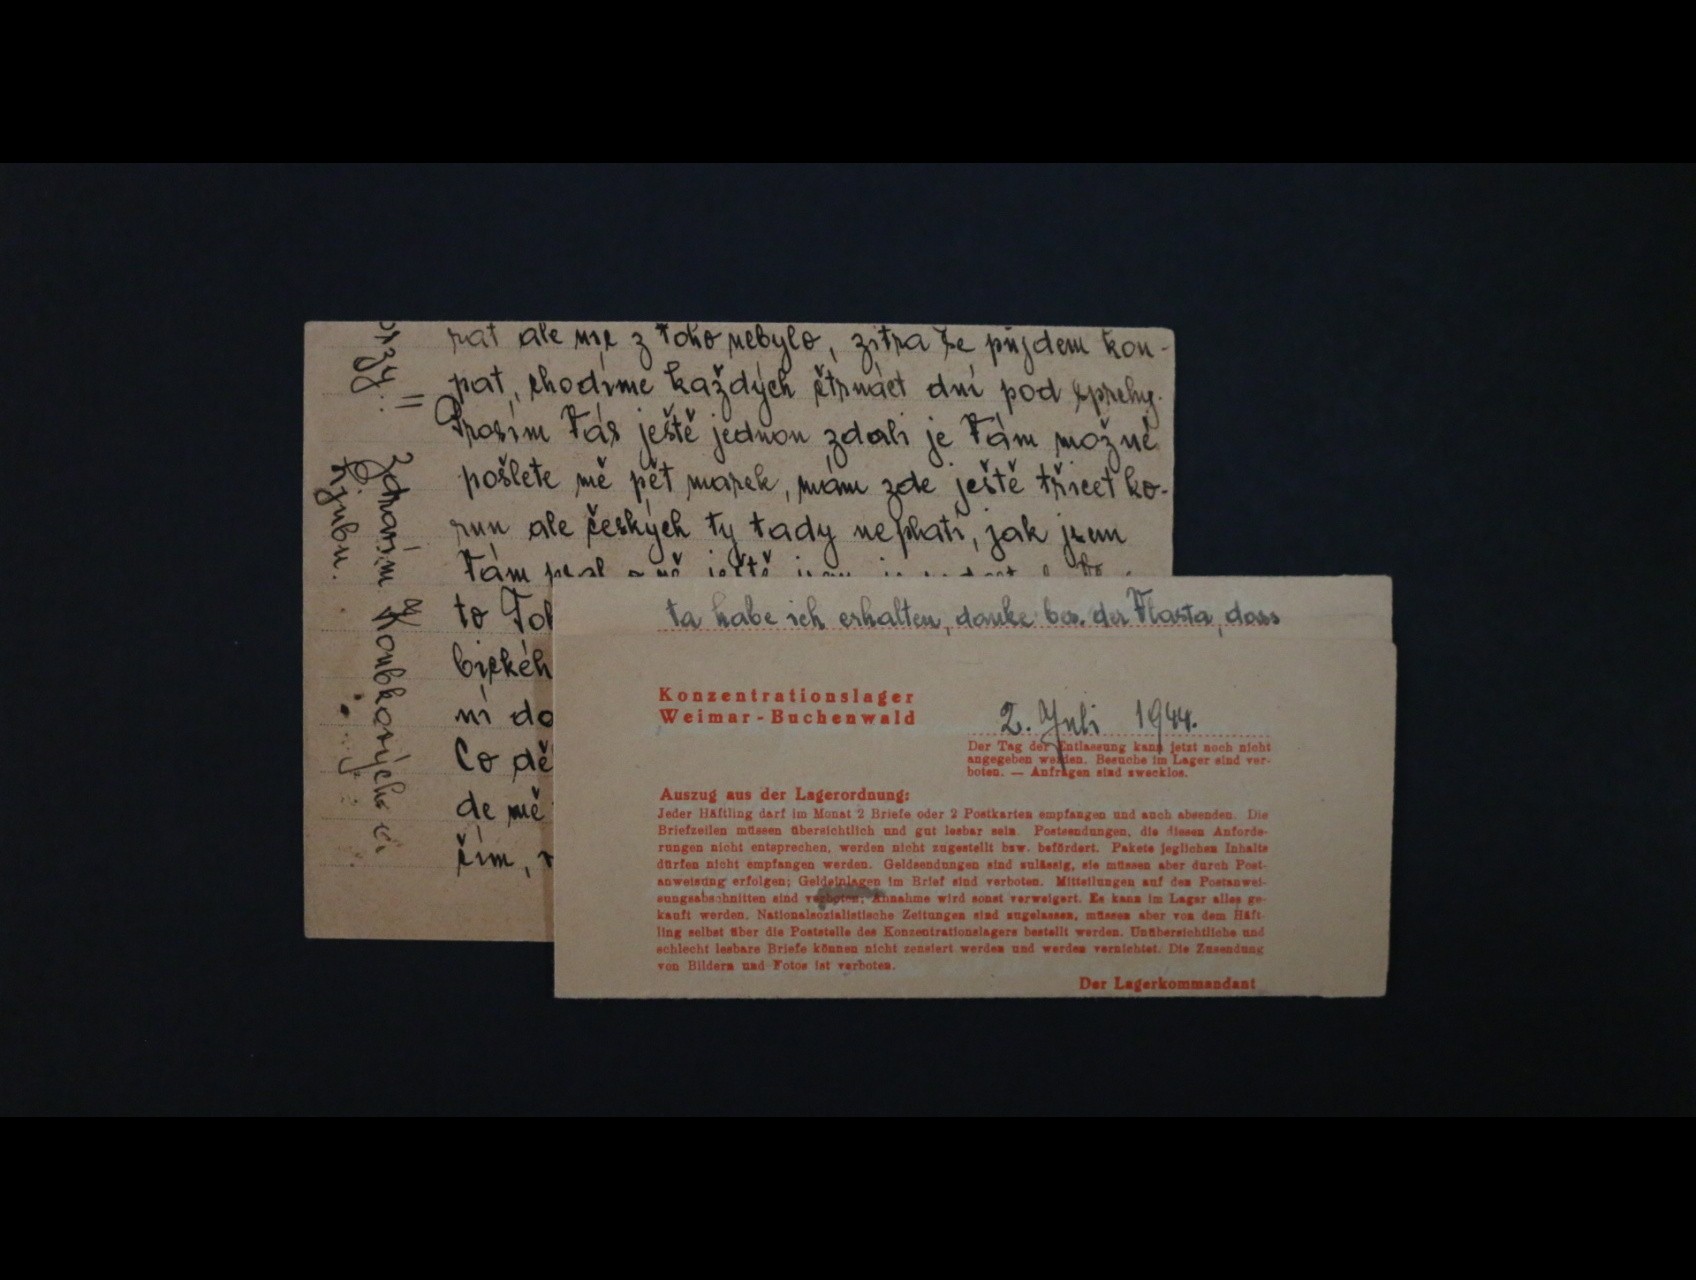 pat ale nic z toho nebylo, zítra že půjdem kou-
pat, chodíme každých čtrnáct dní pod sprchy.
Prosím Vás ještě jednou zdali je Vám možné
pošlete mě pět marek, mám zde ještě třicet ko-
run ale českých ty tady neplatí, jak jsem
Vám psal
to
ní do
Co dě
de mě
čím,
Zdravím
ta habe ich erhalten, danke bes. der Vlasta, dass
Konzentrationslager
Weimar-Buchenwald
2. Juli 1944.
Der Tag der Entlassung kann jetzt noch nicht
angegeben werden. Besuche im Lager sind ver-
boten. — Anfragen sind zwecklos.
Auszug aus der Lagerordnung:
Jeder Häftling darf im Monat 2 Briefe oder 2 Postkarten empfangen und auch absenden. Die
Briefzeilen müssen übersichtlich und gut lesbar sein. Postsendungen, die diesen Anforde-
rungen nicht entsprechen, werden nicht zugestellt bzw. befördert. Pakete jeglichen Inhalts
dürfen nicht empfangen werden. Geldsendungen sind zulässig, sie müssen aber durch Post-
anweisung erfolgen; Geldeinlagen im Brief sind verboten. Mitteilungen auf den Postanwei-
sungsabschnitten sind verboten; Annahme wird sonst verweigert. Es kann im Lager alles ge-
kauft werden. Nationalsozialistische Zeitungen sind zugelassen, müssen aber von dem Häft-
ling selbst über die Poststelle des Konzentrationslagers bestellt werden. Unübersichtliche und
schlecht lesbare Briefe können nicht zensiert werden und werden vernichtet. Die Zusendung
von Bildern und Fotos ist verboten.
Der Lagerkommandant